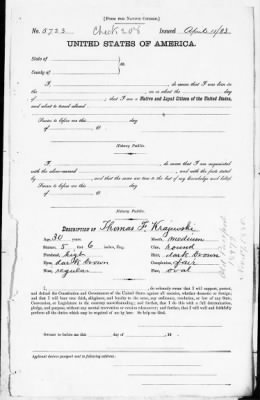 [FORM FOR NATIVE CITIZEN.]
No. 5723 Check 208 Issued April 11/83
UNITED STATES OF AMERICA.
State of
ss:
County of
I, do swear that I was born in
the on or about the day
of ; that I am a Native and Loyal Citizen of the United States,
and about to travel abroad
Sworn to before me this
day of 18
Notary Public.
I, do swear that I am acquainted
with the above-named and with the facts stated
by , and that the same are true to the best of my knowledge and belief.
Sworn to before me this
day of 18
Notary Public.
DESCRIPTION OF Thomas F. Krajewski
Age: 30 years Mouth: medium
Stature: 5 feet 6 inches, Eng. Chin: round
Forehead: high Hair: dark brown
Eyes: dark brown Complexion: fair
Nose: regular Face: oval
I, do solemnly swear that I will support, protect,
and defend the Constitution and Government of the United States against all enemies, whether domestic or foreign;
and that I will bear true faith, allegiance, and loyalty to the same, any ordinance, resolution, or law of any State,
Convention, or Legislature to the contrary notwithstanding; and further, that I do this with a full determination,
pledge, and purpose, without any mental reservation or evasion whatsoever; and further, that I will well and faithfully
perform all the duties which may be required of me by law. So help me God.
Sworn to before me this day of , 18
Applicant desires passport sent to following address: